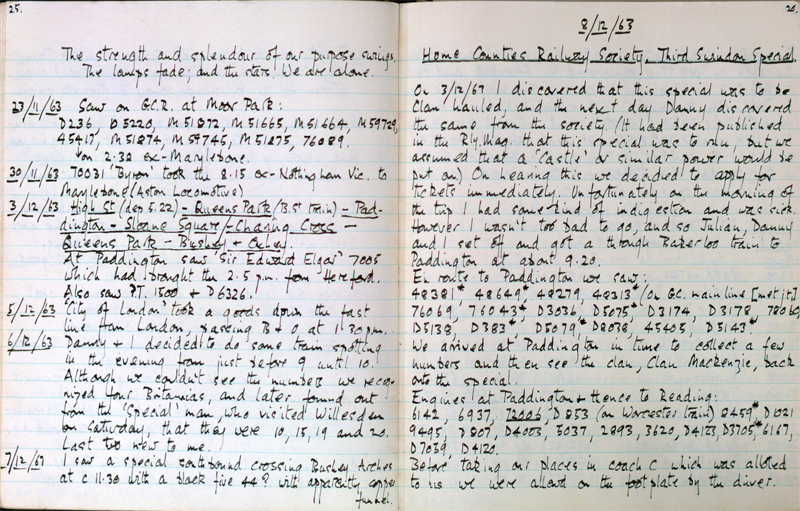 25.
The strength and splendour of our purpose swings.
The lamps fade; and the stars. We are alone.
23/11/63 Saw on G.C.R. at Moor Park:
D236, D5220, M51872, M51665, M51664, M59729,
45417, M51874, M59745, M51875, 76089.
on 2.38 ex-Marylebone.
30/11/63 70031 'Byron' took the 8.15 ex-Nottingham Vic. to
Marylebone (Aston Locomotive)
3/12/63 High St (dep 5.22) - Queens Park (B.St train) - Pad-
dington - Sloane Square - Charing Cross -
Queens Park - Bushey & Oxhey.
At Paddington saw 'Sir Edward Elgar' 7005
which had brought the 2.5 p.m. from Hereford.
Also saw P.T. 1500 & D6326.
5/12/63 'City of London' took a goods down the fast
line from London, passing B & O at 1.30pm.
6/12/63 Danny & I decided to do some train spotting
in the evening from just before 9 until 10.
Although we couldn't see the numbers we recog-
nized four Britannias, and later found out
from the 'Special' man, who visited Willesden
on Saturday, that they were 10, 15, 19 and 20.
Last two new to me.
7/12/63 I saw a special southbound crossing Bushey Arches
at c 11.30 with a black five 44? with apparently copper
funnel.
26.
8/12/63
Home Counties Railway Society, Third Swindon Special.
On 3/12/63 I discovered that this special was to be
Clan hauled, and the next day Danny discovered
the same from the society (It had been published
in the Rly. Mag. that this special was to run, but we
assumed that a 'Castle' or similar power would be
put on) On hearing this we decided to apply for
tickets immediately. Unfortunately on the morning of
the trip I had some kind of indigestion and was sick.
However I wasn't too bad to go, and so Julian, Danny
and I set off and got a through Bakerloo train to
Paddington at about 9.20.
En route to Paddington we saw:
48381*, 48649*, 48279, 48313* (on G.C. main line [met jt])
76069, 76043*, D3036, D5075*, D3174, D3178, 78060,
D5138, D383*, D5079*, D8038, 45405, D5143*.
We arrived at Paddington in time to collect a few
numbers and then see the clan, Clan Mackenzie, back
onto the special.
Engines at Paddington & Hence to Reading:
6142, 6937, 72006, D853 (on Worcester train) 8459*, D1021
9495, D807, D4003, 5037, 2893, 3620, D4123, D3705*, 6167,
D7039, D4120.
Before taking our places in coach C which was alloted
to us we were allowed on the footplate by the driver.